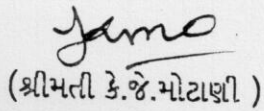 (શ્રીમતી કે.જે.મોટાણી)